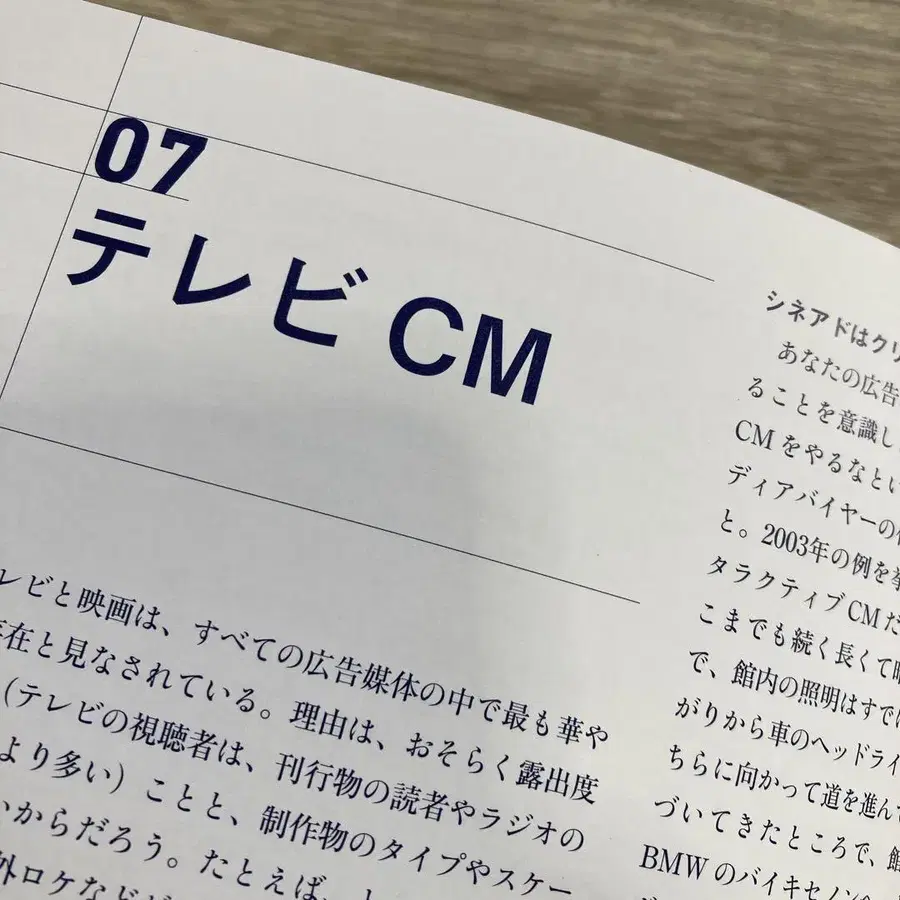 07
テレビ CM
レビと映画は、すべての広告媒体の中で最も華や
存在と見なされている。理由は、おそらく露出度
（テレビの視聴者は、刊行物の読者やラジオの
より多い）ことと、制作物のタイプやスケー
いからだろう。たとえば、
外ロケなどが
シネアドはクリ
あなたの広告
ることを意識し
CMをやるなとい
ディアバイヤーの
と。2003年の例を挙
タラクティブCMだ
こまでも続く長くて暗
で、館内の照明はすでに
がりから車のヘッドライ
ちらに向かって道を進んで
づいてきたところで、館
BMWのバイキセノンヘ